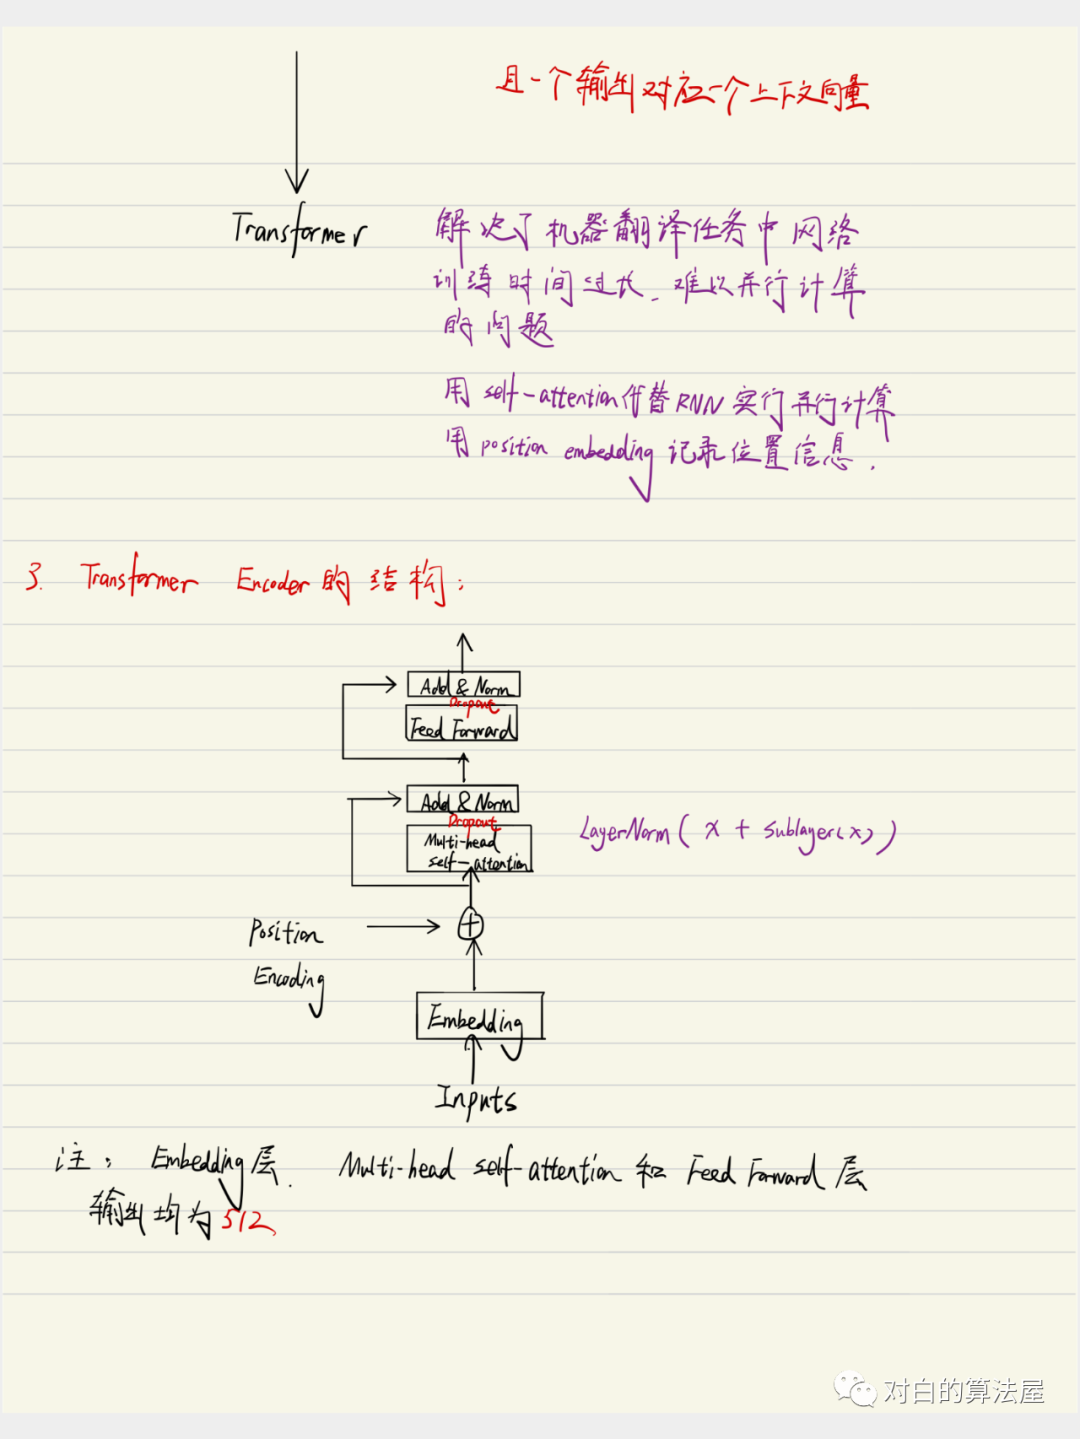 且一个输出对应一个上下文向量
Transformer
解决了机器翻译任务中网络
训练时间过长、难以并行计算
的问题
用 self-attention代替RNN 实行并行计算
用 position embedding 记录位置信息.
3. Transformer Encoder 的结构:
Add & Norm
Dropout
Feed Forward
Add & Norm
Dropout
Multi-head
self-attention
LayerNorm( x + sublayer(x) )
Position
Encoding
Embedding
Inputs
注: Embedding层、 Multi-head self-attention 和 Feed Forward 层
输出均为 512
对白的算法屋